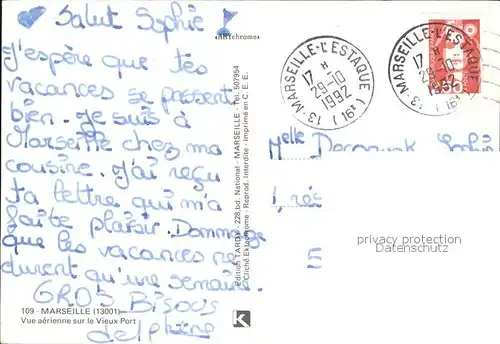 Salut Sophie!
J'espère que tes
vacances se passent
bien. Je suis à
Marseille chez ma
cousine. J'ai reçu
ta lettre qui m'a
faite plaisir. Dommage
que les vacances ne
durent qu'une semaine.
GROS BISOUS
delphine
109 - MARSEILLE (13001)
Vue aérienne sur le Vieux Port
«ARYchrome»
Edition TARDY - 228, bd. National - MARSEILLE - Tél. 507954
Cliché Ektachrome - Reprod. Interdite - Imprimé en C.E.E.
K
13 - MARSEILLE-L'ESTAQUE (16e)
17 H
29-10
1992
13 - MARSEILLE-L'ESTAQUE (16e)
17 H
29-10
1992
Melle Sophie
5
privacy protection
Datenschutz